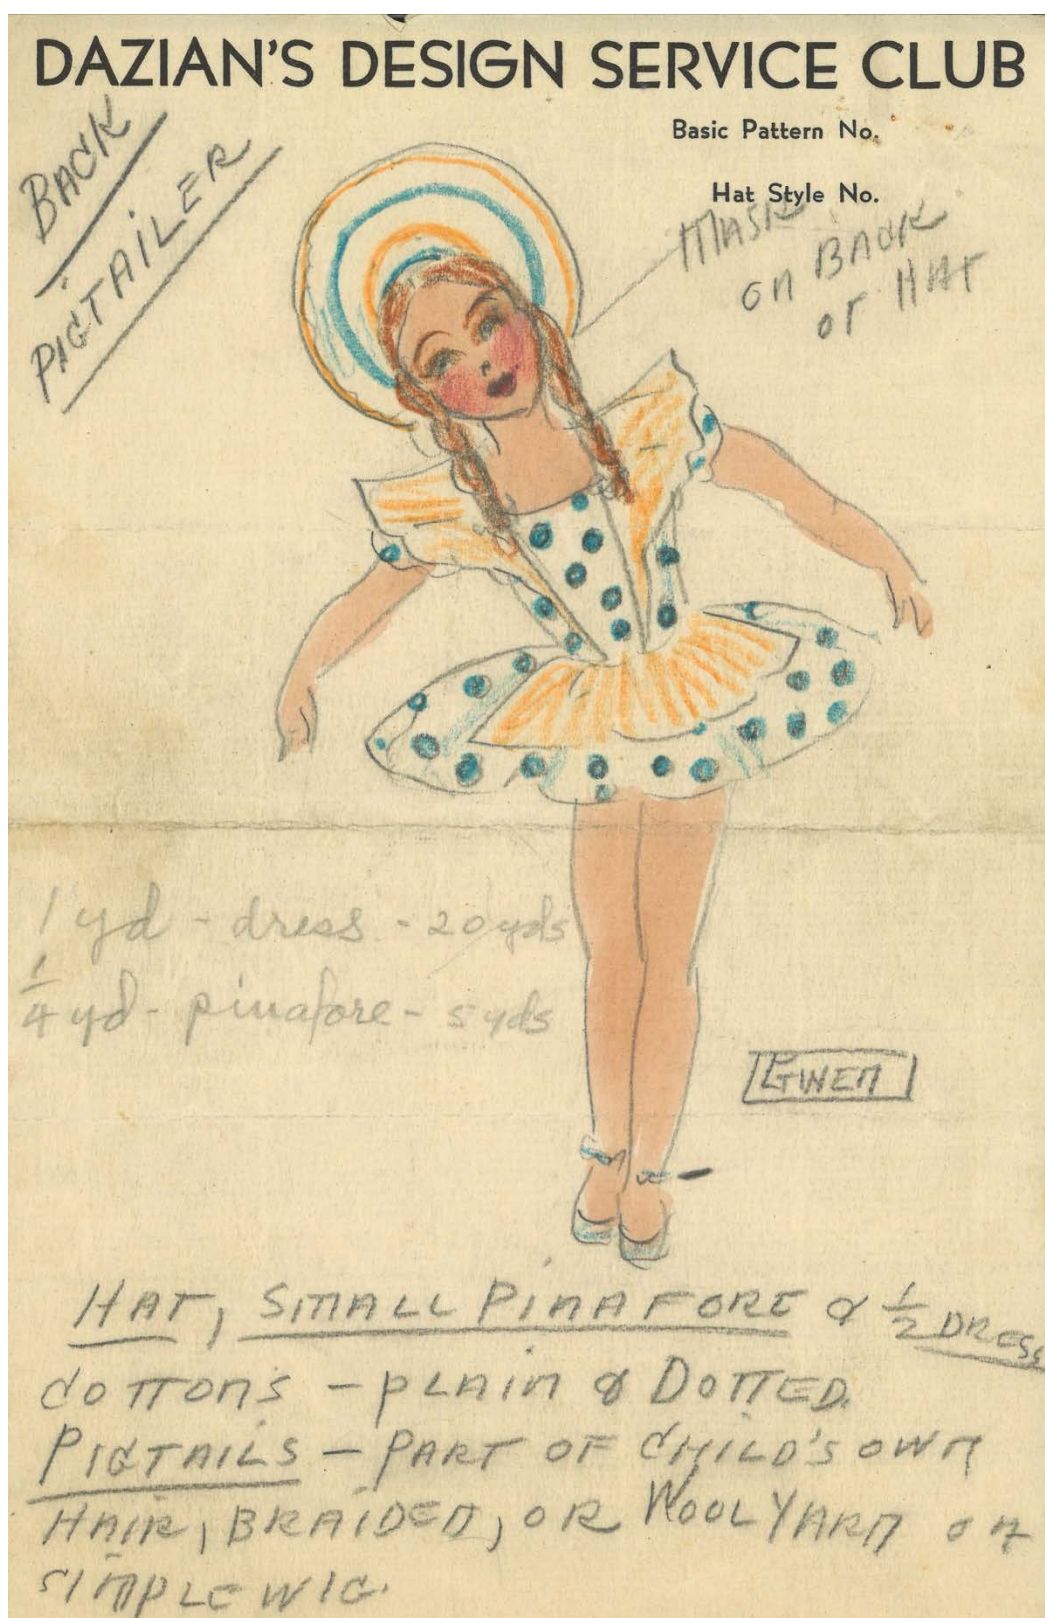 DAZIAN'S DESIGN SERVICE CLUB
Basic Pattern No.
Hat Style No.
BACK
PIGTAILER
MASK
ON BACK
OF HAT
1 yd - dress - 20 yds
1/4 yd - pinafore - 5 yds
GWEN
HAT, SMALL PINAFORE & 1/2 DRESS
COTTONS - PLAIN & DOTTED.
PIGTAILS - PART OF CHILD'S OWN
HAIR, BRAIDED, OR WOOL YARN ON
SIMPLE WIG.